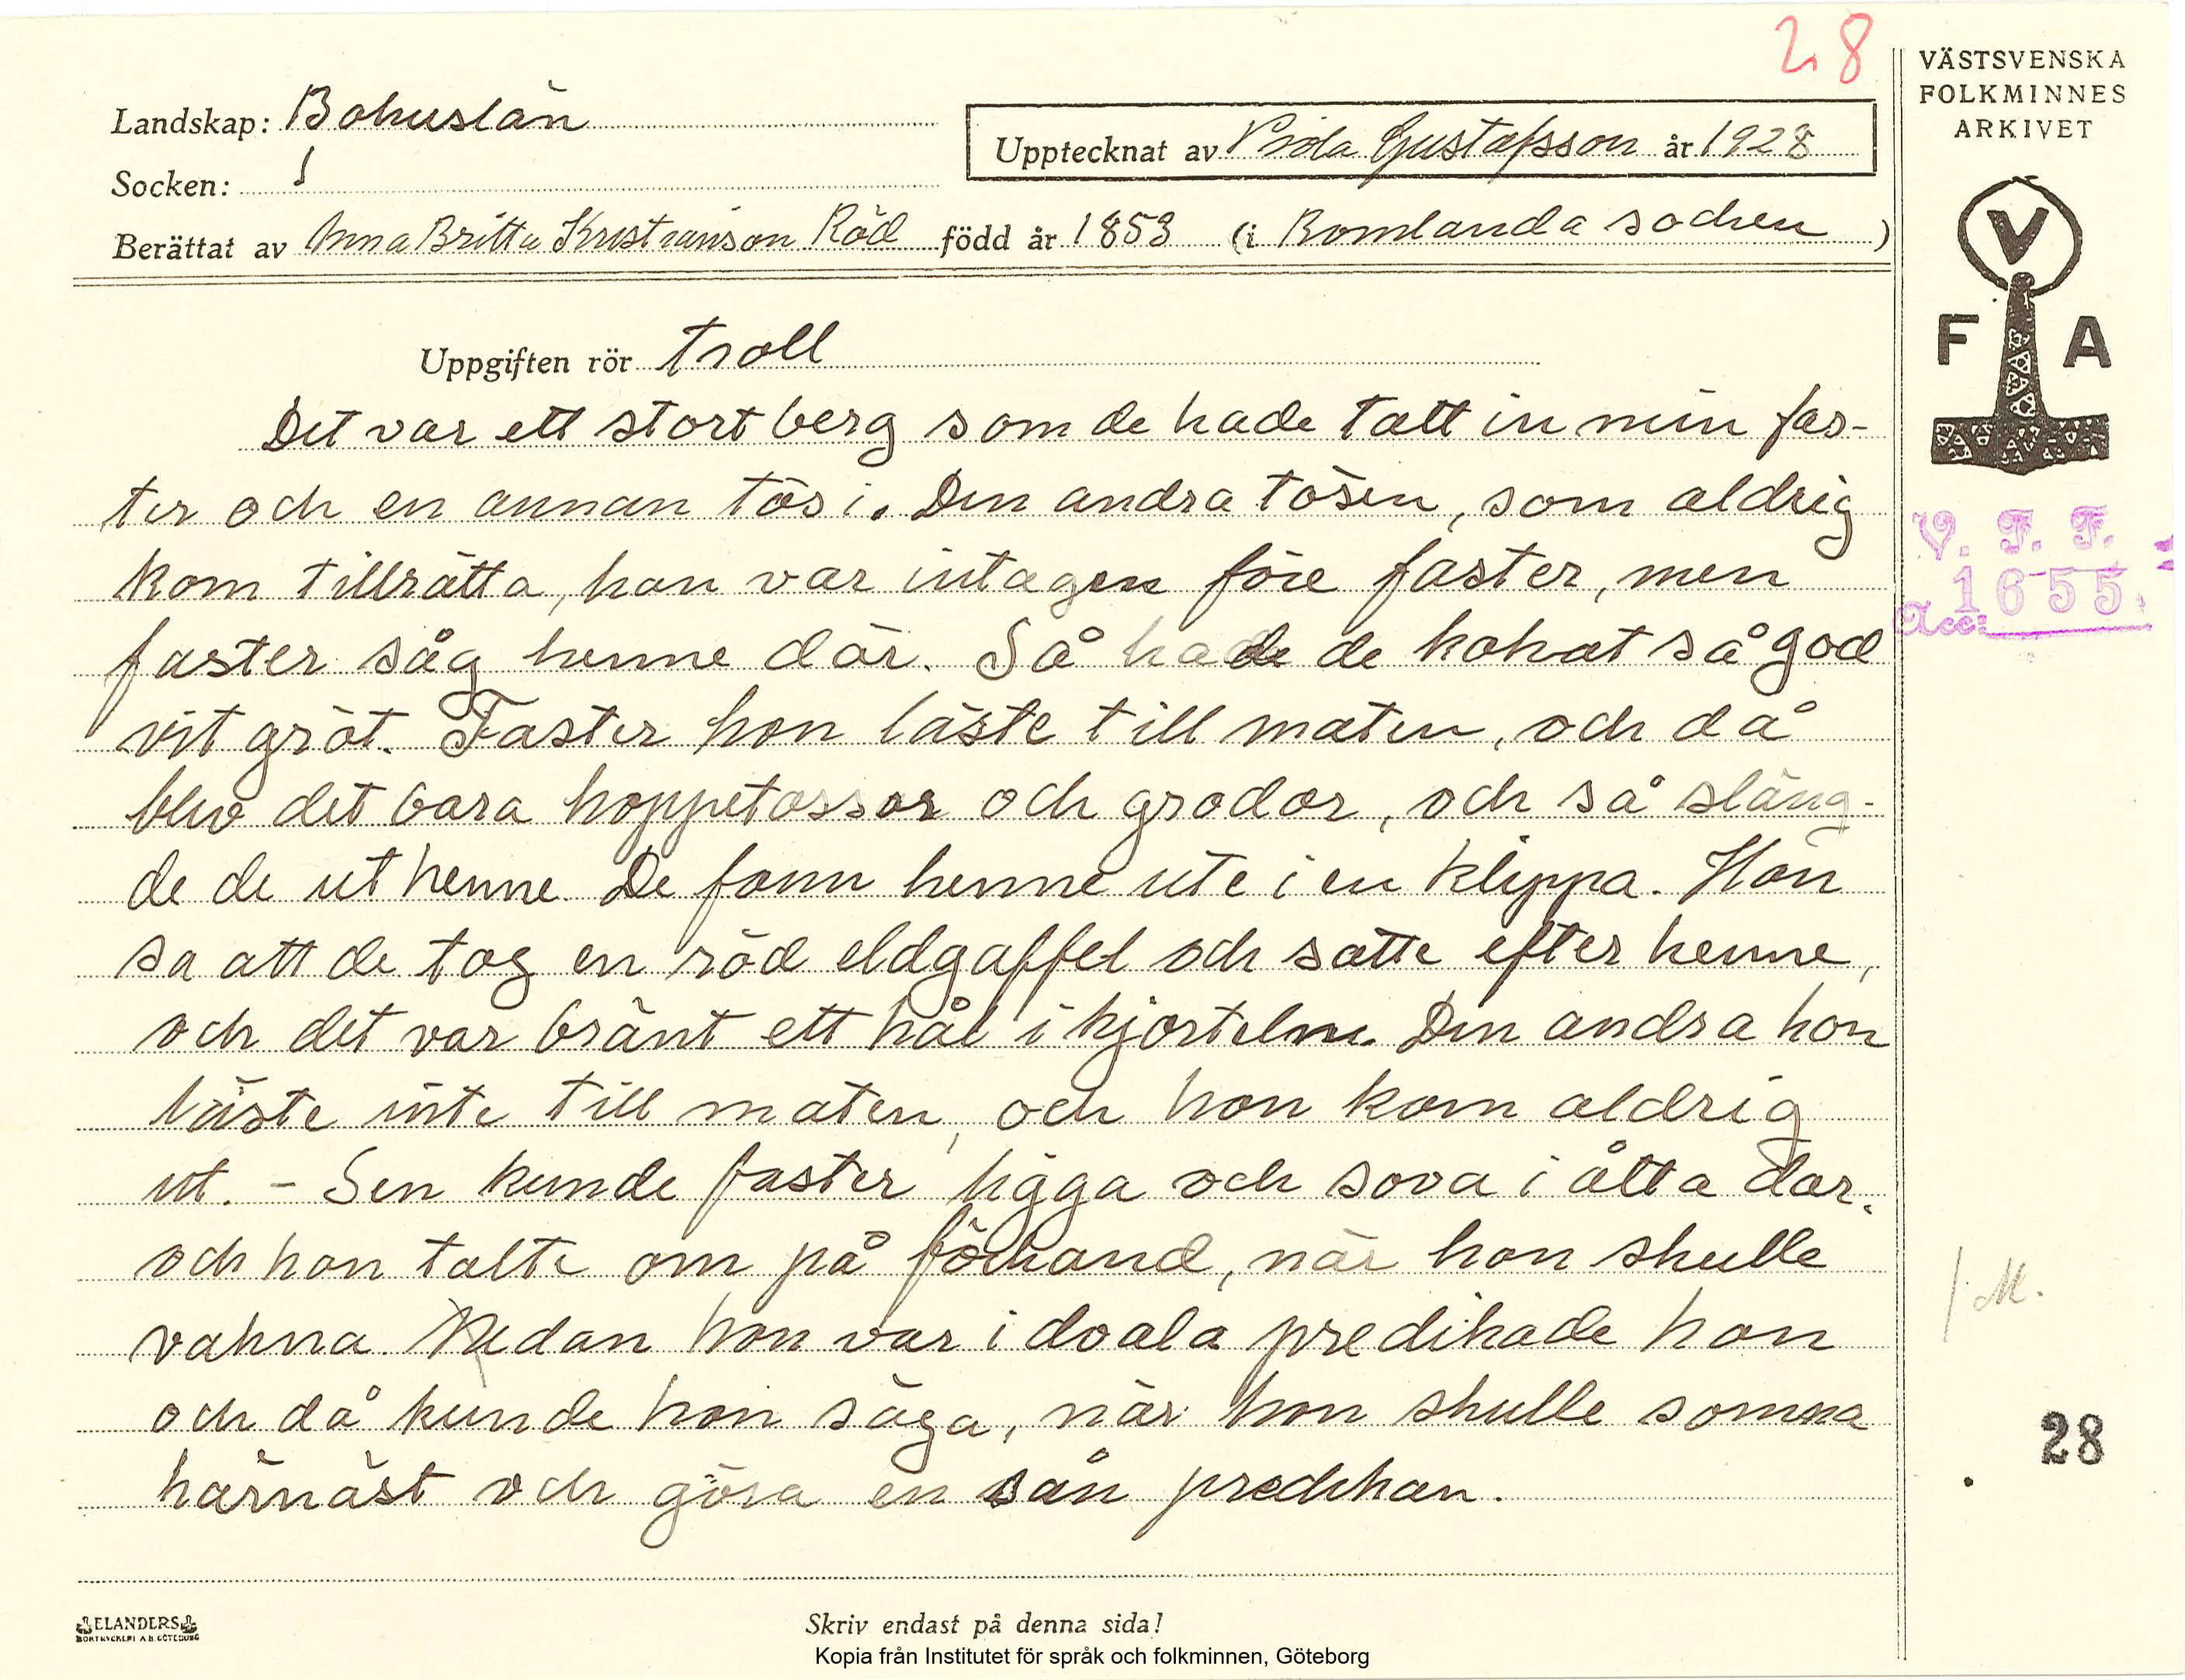 28
VÄSTSVENSKA
FOLKMINNES
ARKIVET
Landskap: Bohuslän
Upptecknat av Frida Gustafsson år 1928
Socken:
Berättat av Anna Britta Kristianson Röd född år 1853 (i Romlanda socken)
V
F A
Uppgiften rör Troll
Det var ett stort berg som de hade tatt in min fas-
ter och en annan tös i. Den andra tösen, som aldrig
kom tillrätta, hon var intagen före faster, men
faster såg henne där. Så hade de kokat så god
vit gröt. Faster hon läste till maten, och då
blev det bara hoppetossor och grodor, och så släng-
de de ut henne. De fann henne ute i en klippa. Hon
sa att de tog en röd eldgaffel och satte efter henne,
och det var bränt ett hål i kjorteln. Den andra hon
läste inte till maten, och hon kom aldrig
ut. - Sen kunde faster ligga och sova i åtta dar,
och hon talte om på förhand, när hon skulle
vakna. Medan hon var i dvala predikade hon
och då kunde hon säga, när hon skulle somna
härnäst och göra en sån predikan.
V. F. F.
Acc: 1655
/ M.
28
ELANDERS
BOKTRYCKERI A.B. GÖTEBORG
Skriv endast på denna sida!
Kopia från Institutet för språk och folkminnen, Göteborg